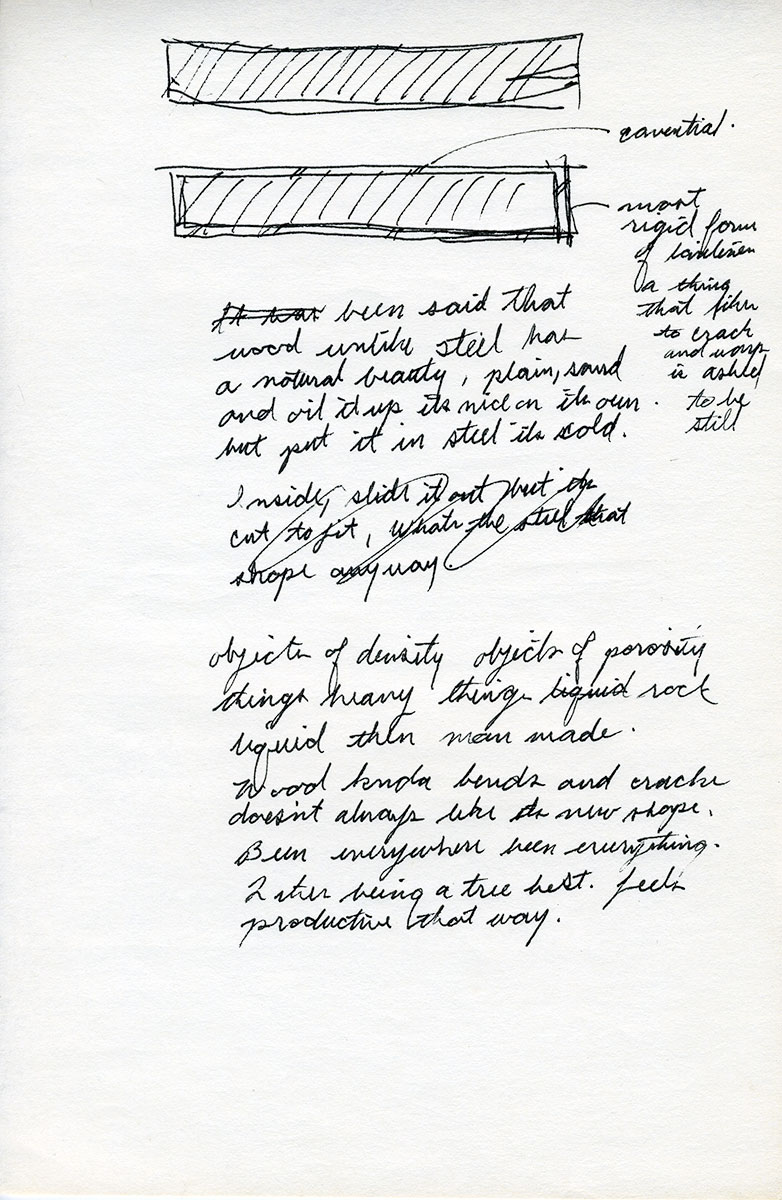 most
rigid form
of
a thing
that
to crack
and warp
is asked
to be
still
It has been said that
wood unlike steel has
a natural beauty, plain, sand
and oil it up its nice on its own.
but put it in steel its cold.
Inside, slide it out but its
cut to fit, whats the steel that
shape anyway.
objects of density objects of porosity
things heavy things liquid rock
liquid then man made.
Wood kinda bends and cracks
doesn't always like its new shape.
Been everywhere been everything.
being a tree best. feels
productive that way.